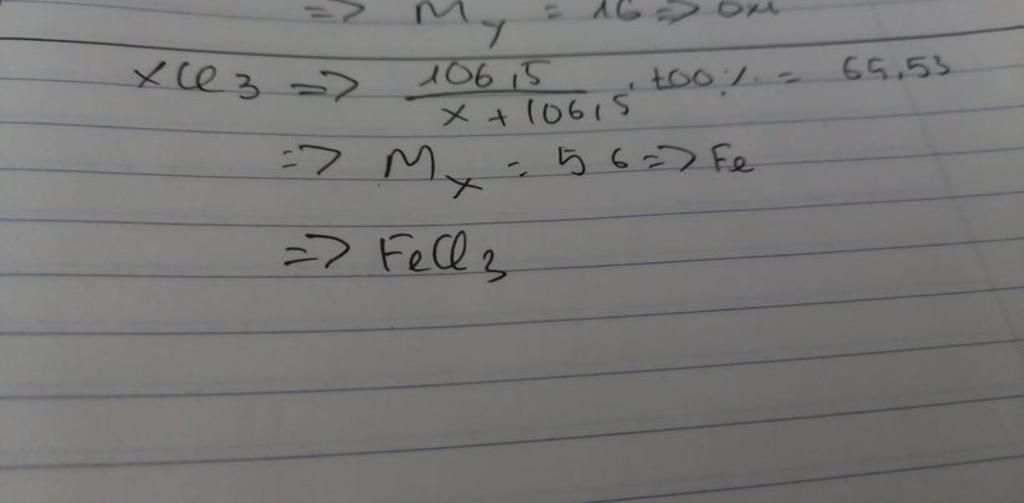 => My = 16 => oxi
XCl3 => 106,5 / x + 106,5 . 100% = 65,53
=> Mx = 56 => Fe
=> FeCl3